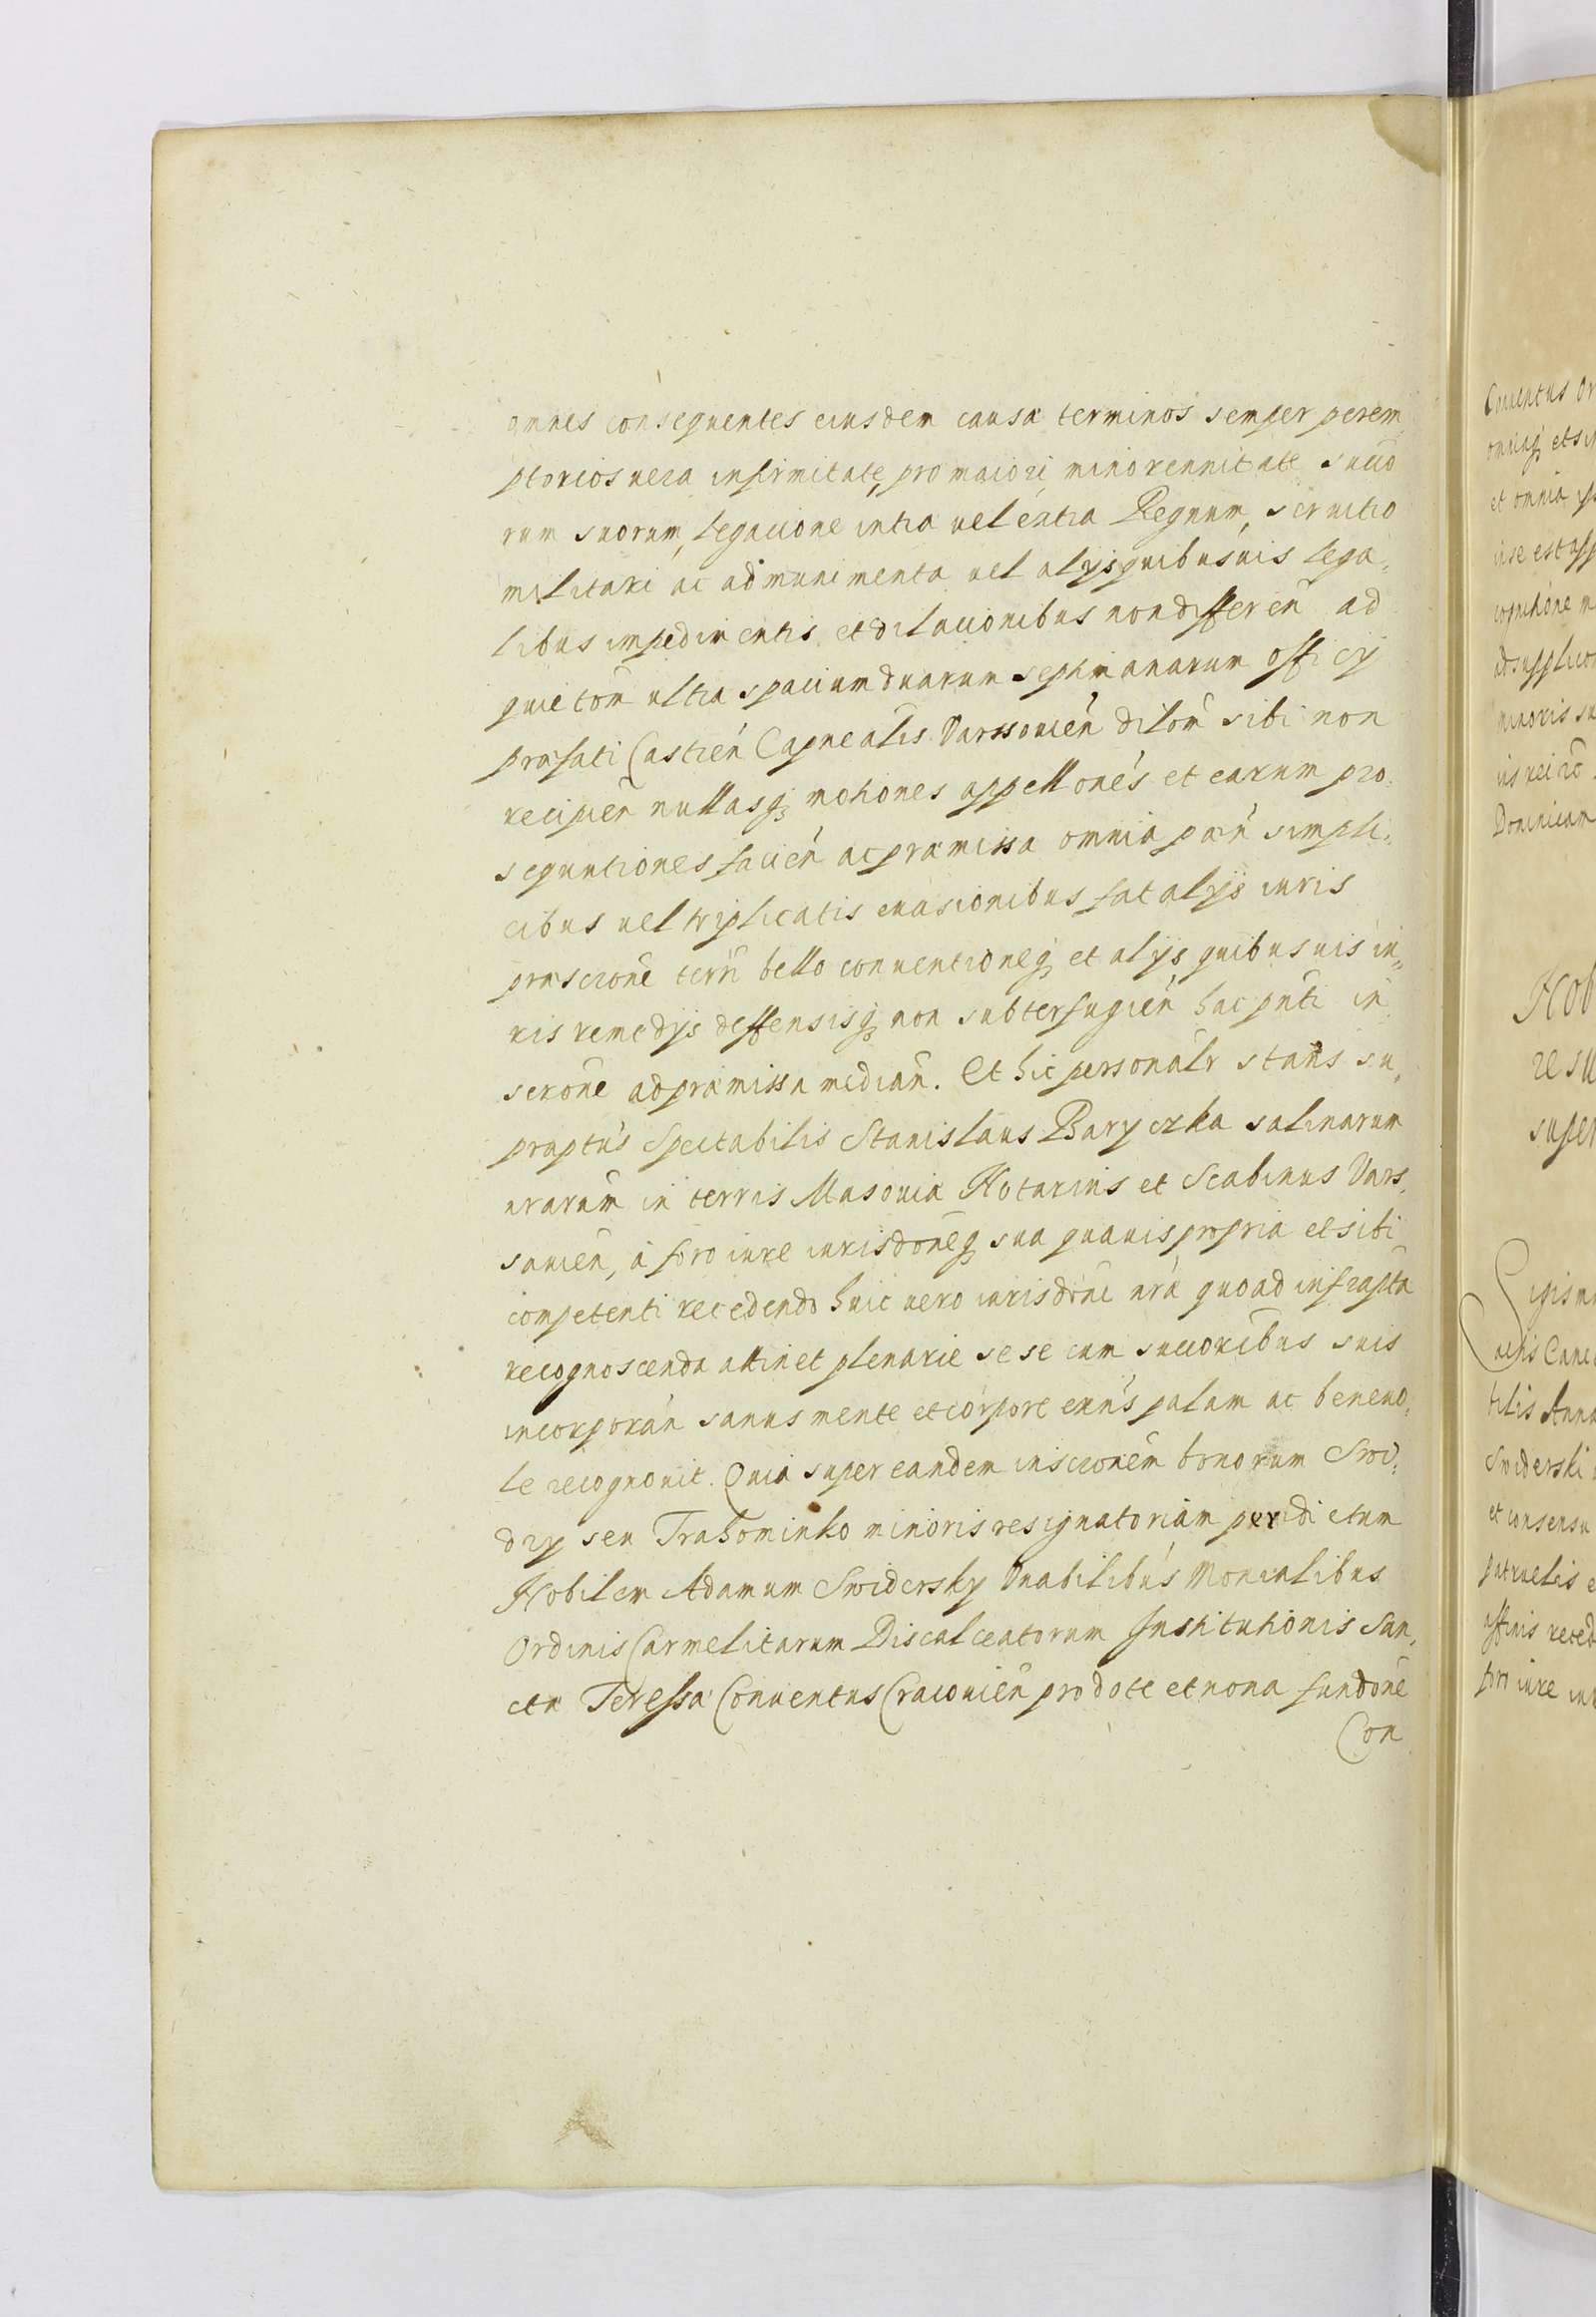 omnes consequentes eiusdem causæ terminos semper perem,
ptorios uera infirmitate, pro maiori, minorennitate succo
rum suorum, legacione intra uel extra Regnum, seruitio
militari ac ad munimenta uel alijs quibusuis lega,
libus impedimentis et dilacionibus non differen̄ ad
quietom̄ ultra spacium duarum septimanarum officij
præfati Castren̄ Capnealis Varssouien̄ dilom̄ sibi non
recipien̄ nullasq; motiones appellones et earum pro,
sequutiones facien̄ ac præmissa omnia per̄n simpli,
cibus uel triplicatis euasionibus fatalijs iuris
præscrone terrī bello conuentioneq; et alijs quibusuis iu,,
ris remedijs deffensisq; non subterfugien̄ hac pn̄ti in
scrone ad præmissa median̄. Et hic personalr stans su,
praptus Spectabilis Stanislaus Baryczka salinarum
nrarum in terris Masouiæ Notarius et Scabinus Vars,
sauien̄, a foro iure iurisdoneq; sua quauis propria et sibi
competenti recedendo huic uero iurisdoni nræ quoad infrapta
recognoscenda attinet plenarie sese cum succoribus suis
incorporan̄ sanus mente et corpore exn̄s palam ac beneuo,
le recognouit. Quia super eandem inscronem bonorum Swi,
dry seu Trahominko minoris resignatoriam per dictum
Nobilem Adamum Swidersky Vnabilibus Monialibus
Ordinis Carmelitarum Discalceatorum Institutionis San,
ctæ Teressæ Conuentus Cracouien̄ pro dote et nona fundone
Con
Cnuentus Or
omniaq; et sin
et omnia ips
cognitione m
ad supplicon
minoris su
Dominicam
Nob
re su
super
Sigism
tilis Anna
Swiderski
et consensu
patruelis e
affinis reced
fori iure iur